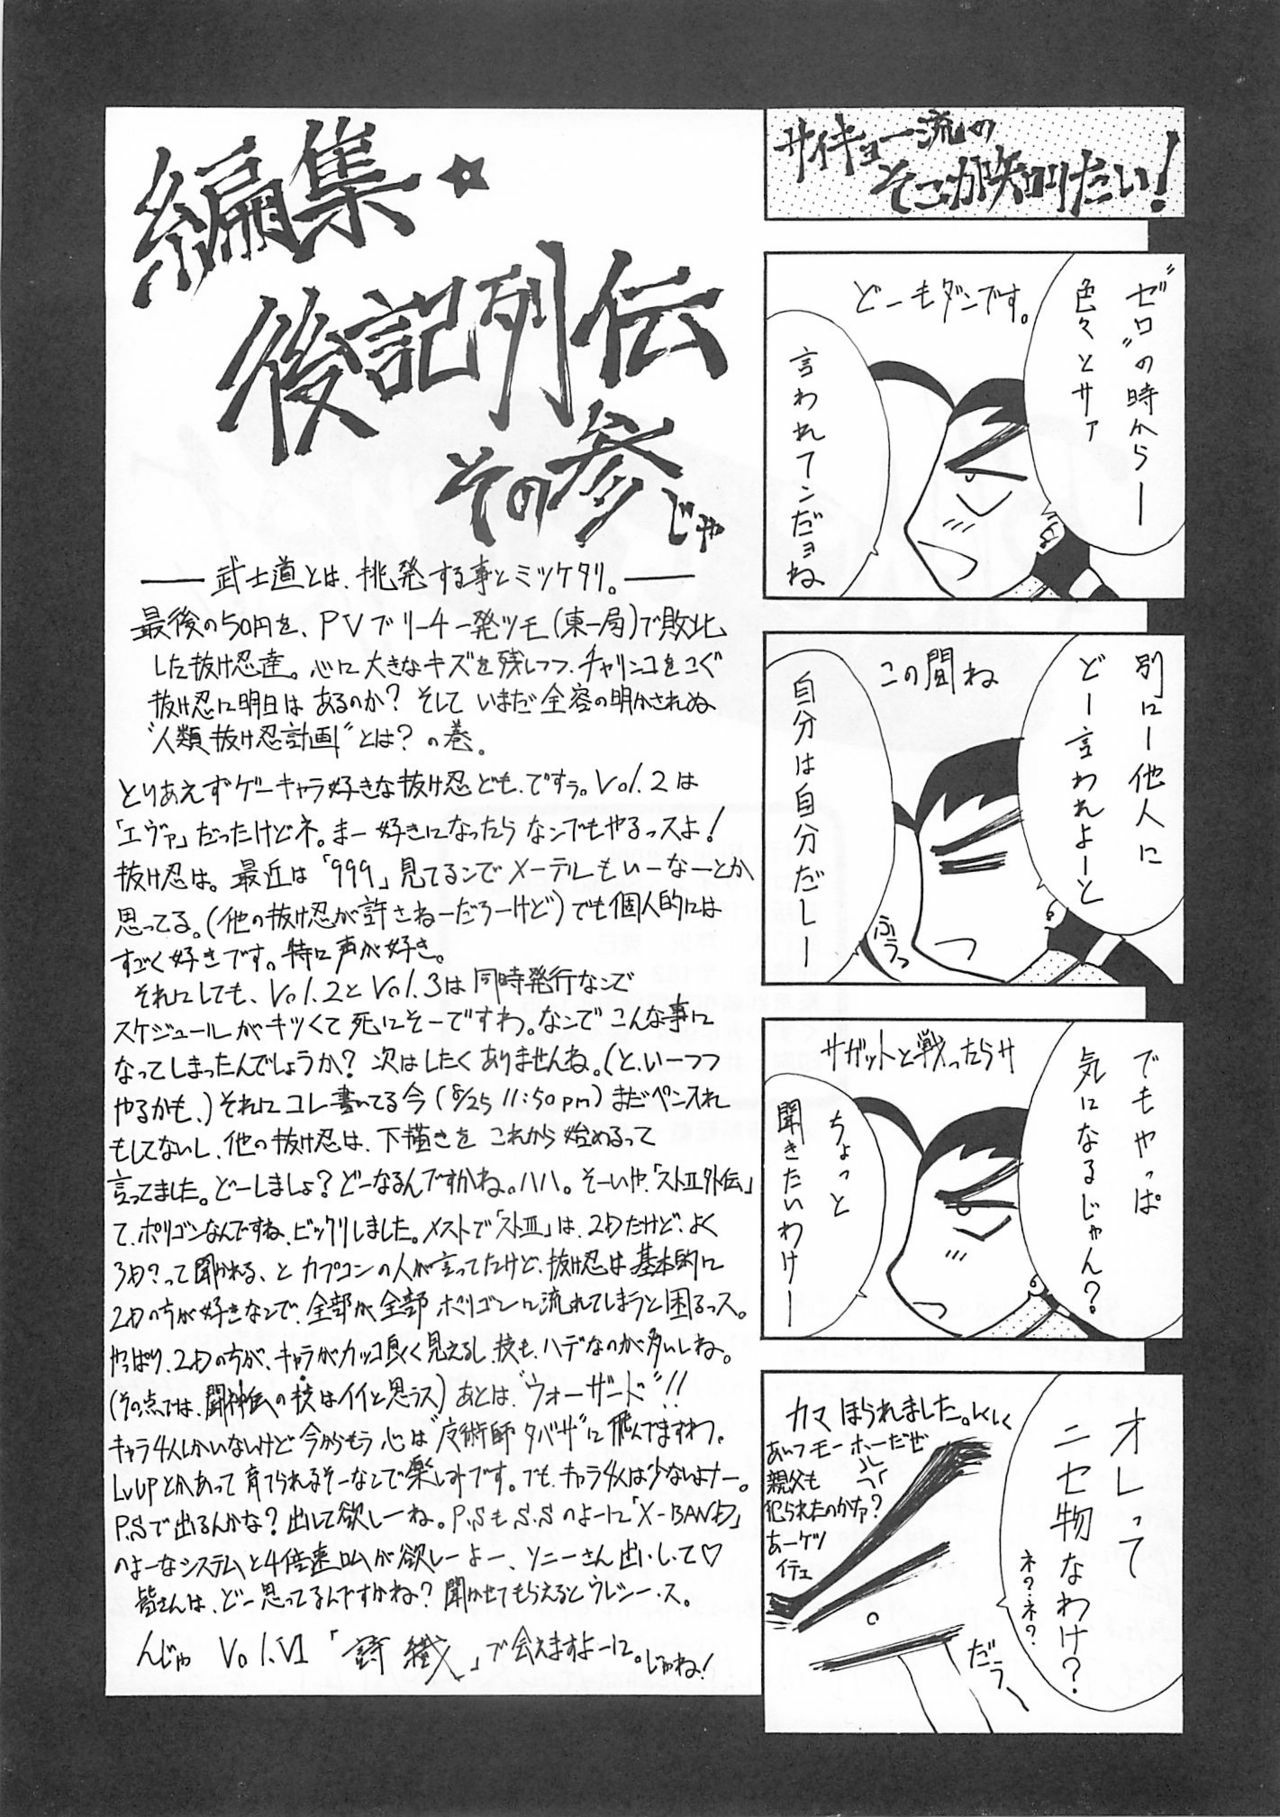 サイキョー流の
そこが知りたい！
"ゼロ"の時からー
色々とサァ
どーもダンです。
言われてンだョね
別にー他人に
どー言われよーと
この間ね
自分は自分だしー
ふぅっ
でもやっぱ
気になるじゃん？
サガットと戦ったらサ
ちょっと
聞きたいわけー
オレって
ニセ物なわけ？
ネ？ネ？
カマほられました。しくしく
あいつモーホーだぜ
親父も
犯られたのかァ？
あーケツ
イテェ
だぅー
編集☆
後記列伝
その参じゃ
――武士道とは、挑発する事とミツケタリ。――
最後の50円を、PVでリーチ一発ツモ(東一局)で敗北
した抜け忍達。心に大きなキズを残しつつ、チャリンコをこぐ
抜け忍に明日はあるのか？そしていまだ全容の明かされぬ
"人類抜け忍計画"とは？の巻。
とりあえずゲーキャラ好きな抜け忍ども、ですぅ。Vol.2は
「エヴァ」だったけどネ。まー好きになったらなんでもやるっスよ！
抜け忍は。最近は「999」見てるんでメーテルもいーなーとか
思ってる。(他の抜け忍が許さねーだろーけど)でも個人的には
すごく好きです。特に声が好き。
それにしても、Vol.2とVol.3は同時発行なんで
スケジュールがキツくて死にそーですわ。なんでこんな事に
なってしまったんでしょうか？次はしたくありませんね。(と、いーつつ
やるかも。)それにコレ書いてる今(8/25 11:50pm)まだペン入れ
もしてないし、他の抜け忍は、下描きをこれから始めるって
言ってました。どーしましょ？どーなるんですかね。ハハ。そーいや、「ストⅡ外伝」
て、ポリゴンなんですね、ビックリしました。メストで「ストⅢ」は、2Dだけど、よく
3D？って聞かれる、とカプコンの人が言ってたけど、抜け忍は基本的に
2Dの方が好きなんで、全部が全部ポリゴンに流れてしまうと困るっス。
やっぱり、2Dの方が、キャラがカッコ良く見えるし、技も、ハデなのが多いしね。
(その点では、闘神伝の技はイイと思うっス)あとは"ウォーザード"!!
キャラ4人しかいないけど今からもう心は"魔術師タバサ"に飛んでますわ。
LvUPとかあって育てられるそーなんで楽しみです。でも、キャラ4人は少ないよナー。
P.Sで出るんかな？出して欲しーね。P.SもS.Sのよーに「X-BAND」
のよーなシステムと4倍速ロムが欲しーよー、ソニーさん出いして♡
皆さんは、どー思ってるんですかね？聞かせてもらえるとウレシー・ス。
んじゃ Vol.Ⅵ「詩織」で会えますよーに。じゃね！